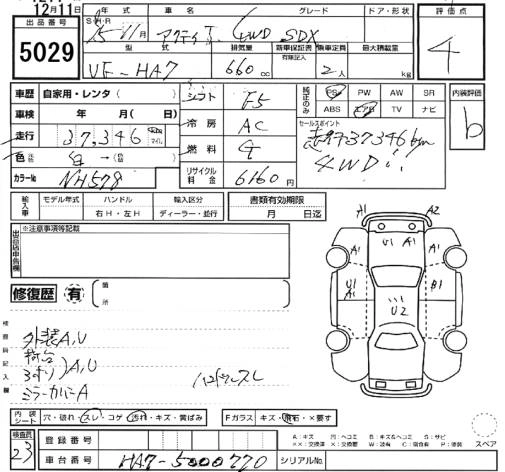 12月11日
出品番号
5029
年式 車名 グレード ドア・形状 評価点
S・H・R
15 11月 アクティT 4WD SDX
4
型式 排気量 新車保証書 乗車定員 最大積載量
有限記入
VE-HA7 660cc 2人 kg
車歴 自家用・レンタ( )
シフト F5
純正のみ PS PW AW SR
ABS エアB TV ナビ
内装評価
b
車検 年 月( 日)
冷房 AC
セールスポイント
走行 37,346 km マイル
37346km
4WD!!
色 白→
燃料
カラー№ NH578
リサイクル料金 6160円
輸入車 モデル年式 ハンドル 輸入区分
右H・左H ディーラー・並行
書類有効期限
月 日迄
出品店申告欄 ※注意事項等記載
修復歴 有 箇所
検査員記入欄
外装A,U
荷台
A,U
ミラーカバーA
A1 A2
U1 A1
A1 A1
U1
A1
B1
U2
内装シート 穴・破れ・スレ・コゲ・汚れ・キズ・黄ばみ
Fガラス キズ・飛石・×要す
A:キズ U:ヘコミ B:キズ&ヘコミ S:サビ
XX:交換済 X:交換要 W:波有 C:腐食有 P:塗装
スペア
検査員 23
登録番号
車台番号 HA7-5000770 シリアル№